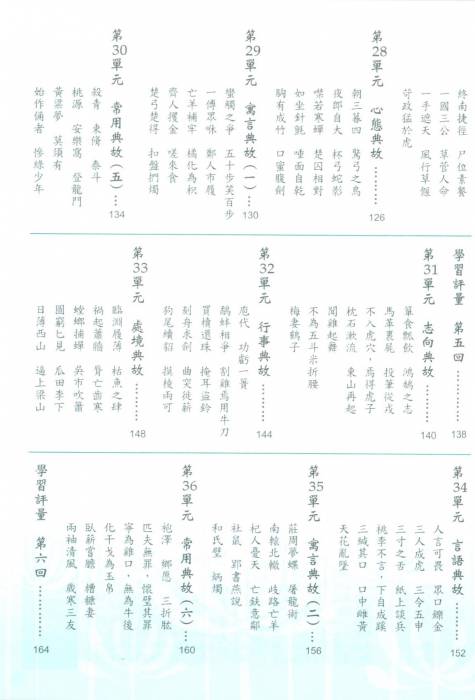 終南捷徑　尸位素餐
一國三公　草菅人命
一手遮天　風行草偃
苛政猛於虎
第28單元　心態典故………126
朝三暮四　驚弓之鳥
夜郎自大　杯弓蛇影
噤若寒蟬　楚囚相對
如坐針氈　唾面自乾
胸有成竹　口蜜腹劍
第29單元　寓言典故（一）…130
蠻觸之爭　五十步笑百步
一傅眾咻　鄭人市履
亡羊補牢　橘化為枳
齊人攫金　嗟來食
楚弓楚得　扣盤捫燭
第30單元　常用典故（五）…134
殺青　束脩　泰斗
桃源　安樂窩　登龍門
黃粱夢　莫須有
始作俑者　慘綠少年
學習評量　第五回………138
第31單元　志向典故………140
簞食瓢飲　鴻鵠之志
馬革裹屍　投筆從戎
不入虎穴，焉得虎子
枕石漱流　東山再起
聞雞起舞
不為五斗米折腰
梅妻鶴子
第32單元　行事典故………144
庖代　功虧一簣
鷸蚌相爭　割雞焉用牛刀
買櫝還珠　掩耳盜鈴
刻舟求劍　曲突徙薪
狗尾續貂　摸稜兩可
第33單元　處境典故………148
臨淵履薄　枯魚之肆
禍起蕭牆　脣亡齒寒
螳螂捕蟬　吳市吹簫
圖窮匕見　瓜田李下
日薄西山　逼上梁山
第34單元　言語典故………152
人言可畏　眾口鑠金
三人成虎　三令五申
三寸之舌　紙上談兵
桃李不言，下自成蹊
三緘其口　口中雌黃
天花亂墜
第35單元　寓言典故（二）…156
莊周夢蝶　屠龍術
南轅北轍　歧路亡羊
杞人憂天　亡鈇意鄰
社鼠　郢書燕說
和氏璧　炳燭
第36單元　常用典故（六）…160
袍澤　鄉愿　三折肱
匹夫無罪，懷璧其罪
寧為雞口，無為牛後
化干戈為玉帛
臥薪嘗膽　糟糠妻
兩袖清風　歲寒三友
學習評量　第六回………164